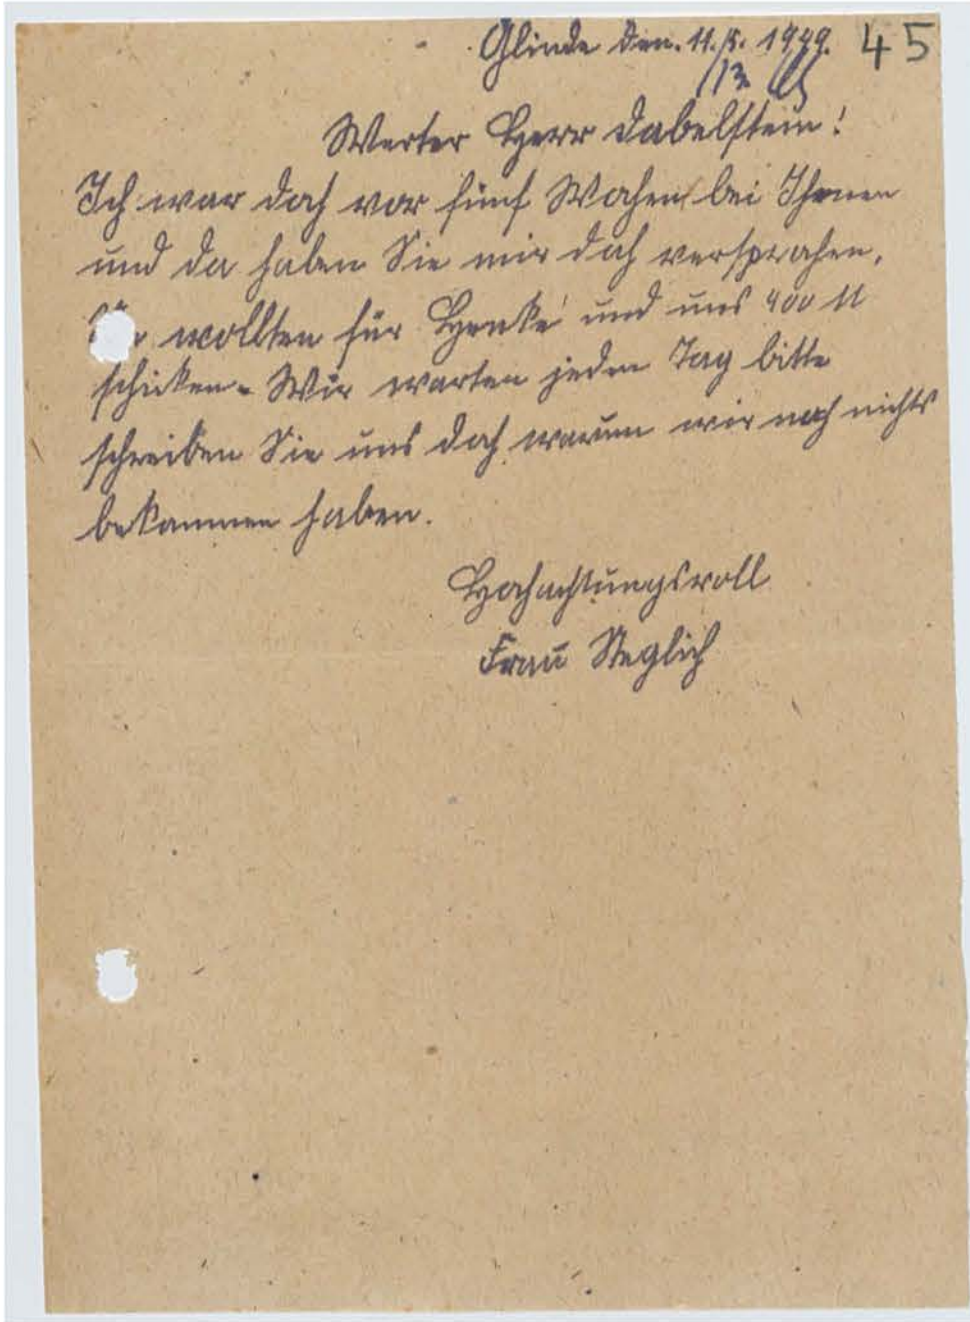 Glinde den. 11./5. 1949. 45
13.
Werter Herr Dabelstein!
Ich war doch vor fünf Wochen bei Ihnen
und da haben Sie mir doch versprochen,
wollten für Henke und uns 400 M
schicken. Wir warten jeden Tag bitte
schreiben Sie uns doch warum wir noch nichts
bekommen haben.
Hochachtungsvoll
Frau Steglich